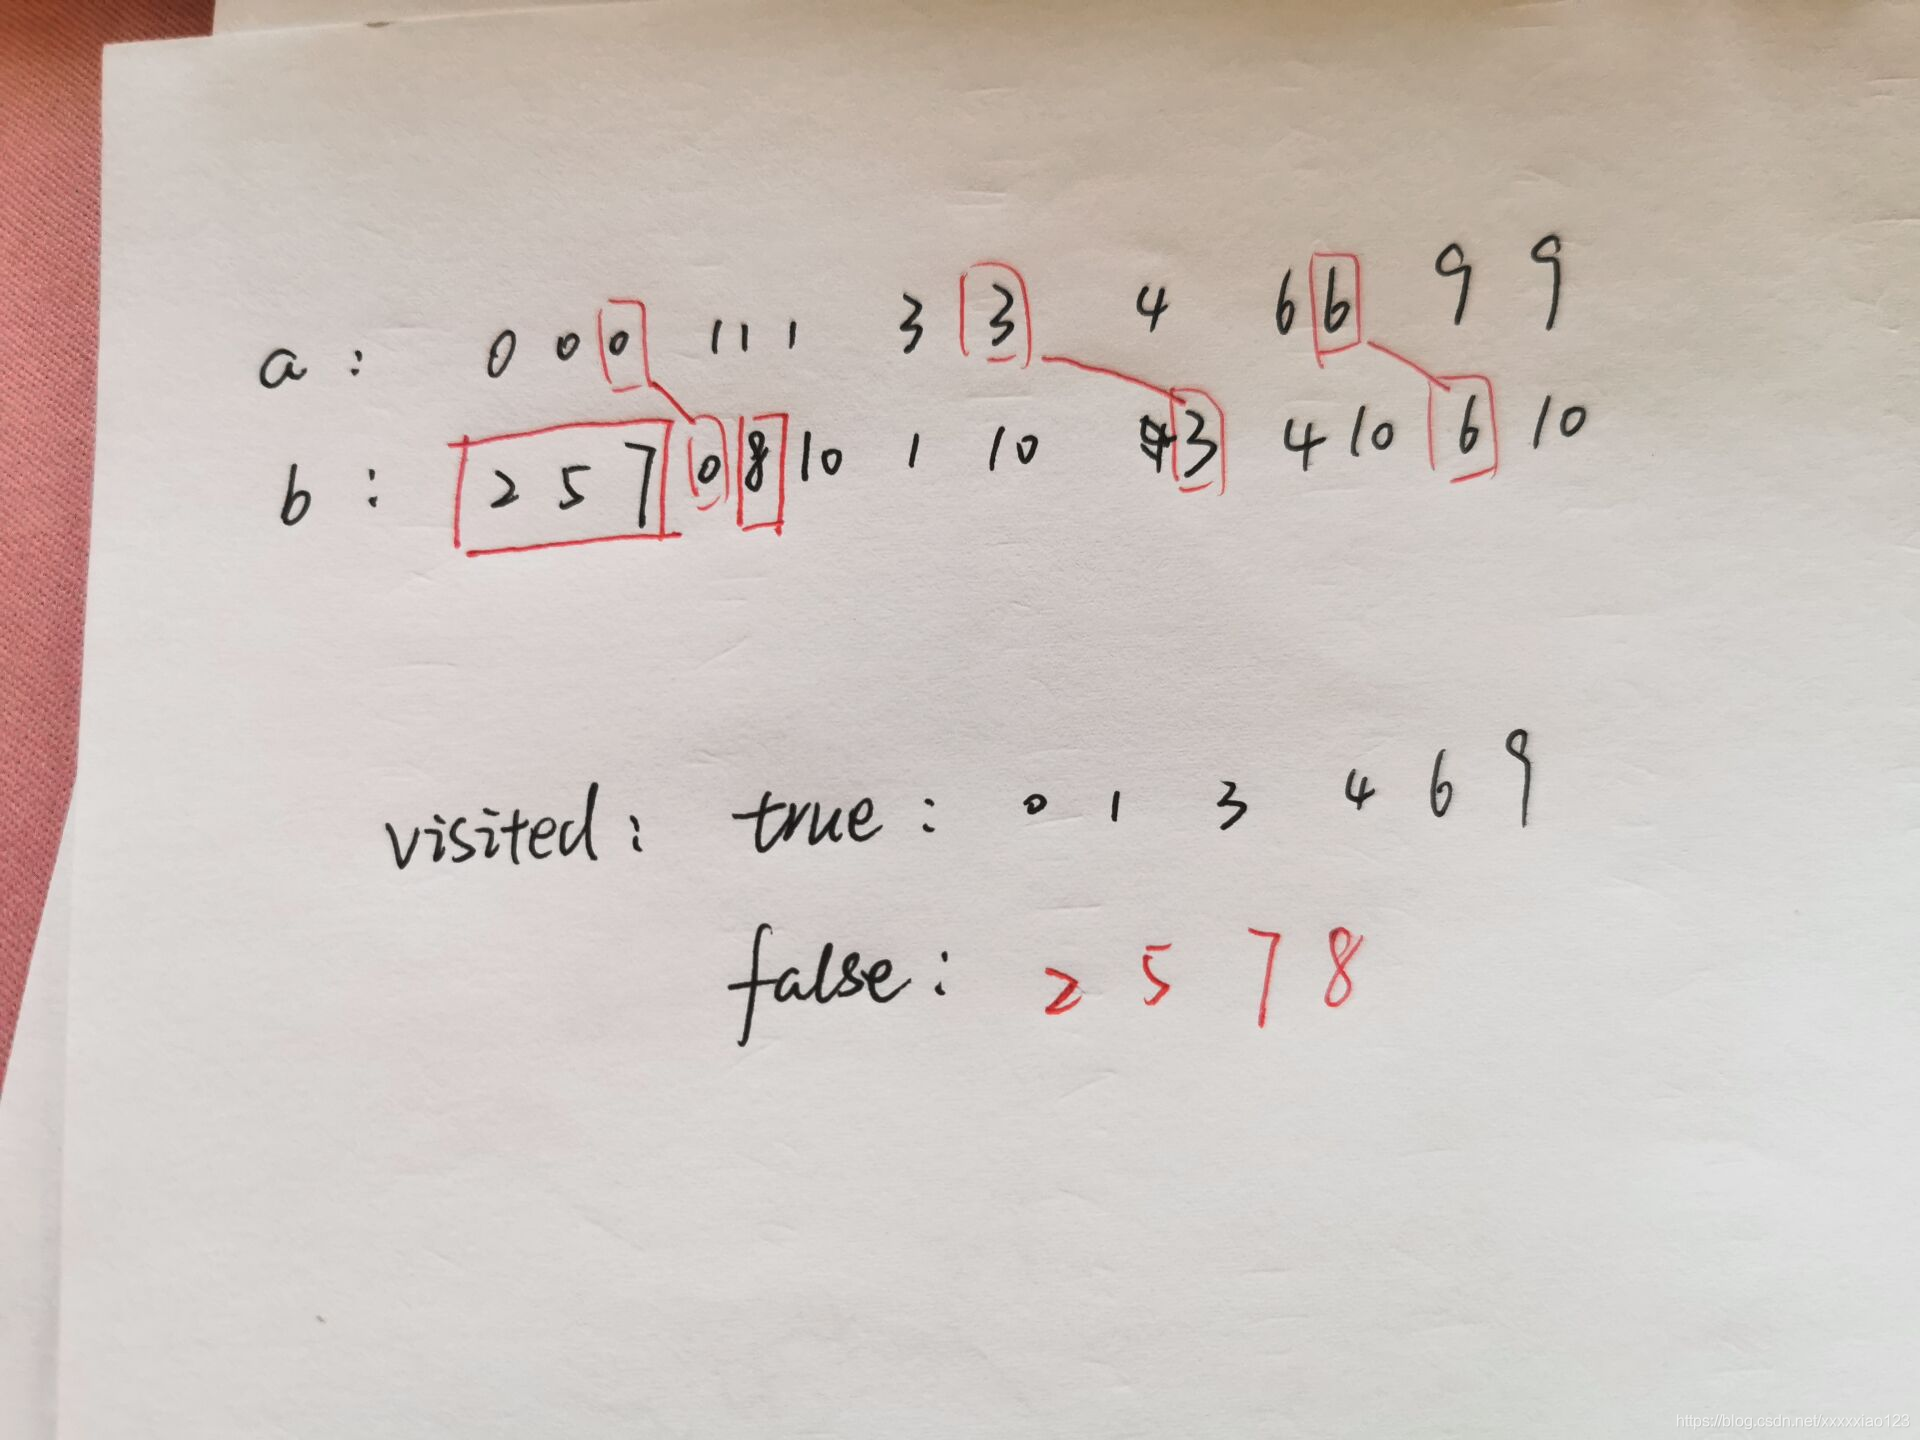 a : 0 0 0 1 1 1 3 3 4 6 6 9 9
b : 2 5 7 0 8 10 1 10 3 4 10 6 10
visited : true : 0 1 3 4 6 9
false : 2 5 7 8
https://blog.csdn.net/xxxxxiao123